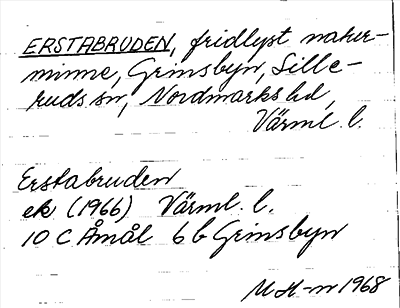 ERSTABRUDEN, fridlyst natur-
minne, Grinsbyn, Sille-
ruds sn, Nordmarks hd,
Värml. l.
Erstabruden
ek (1966) Värml. l.
10 C Åmål 6 b Grinsbyn
M H-n 1968